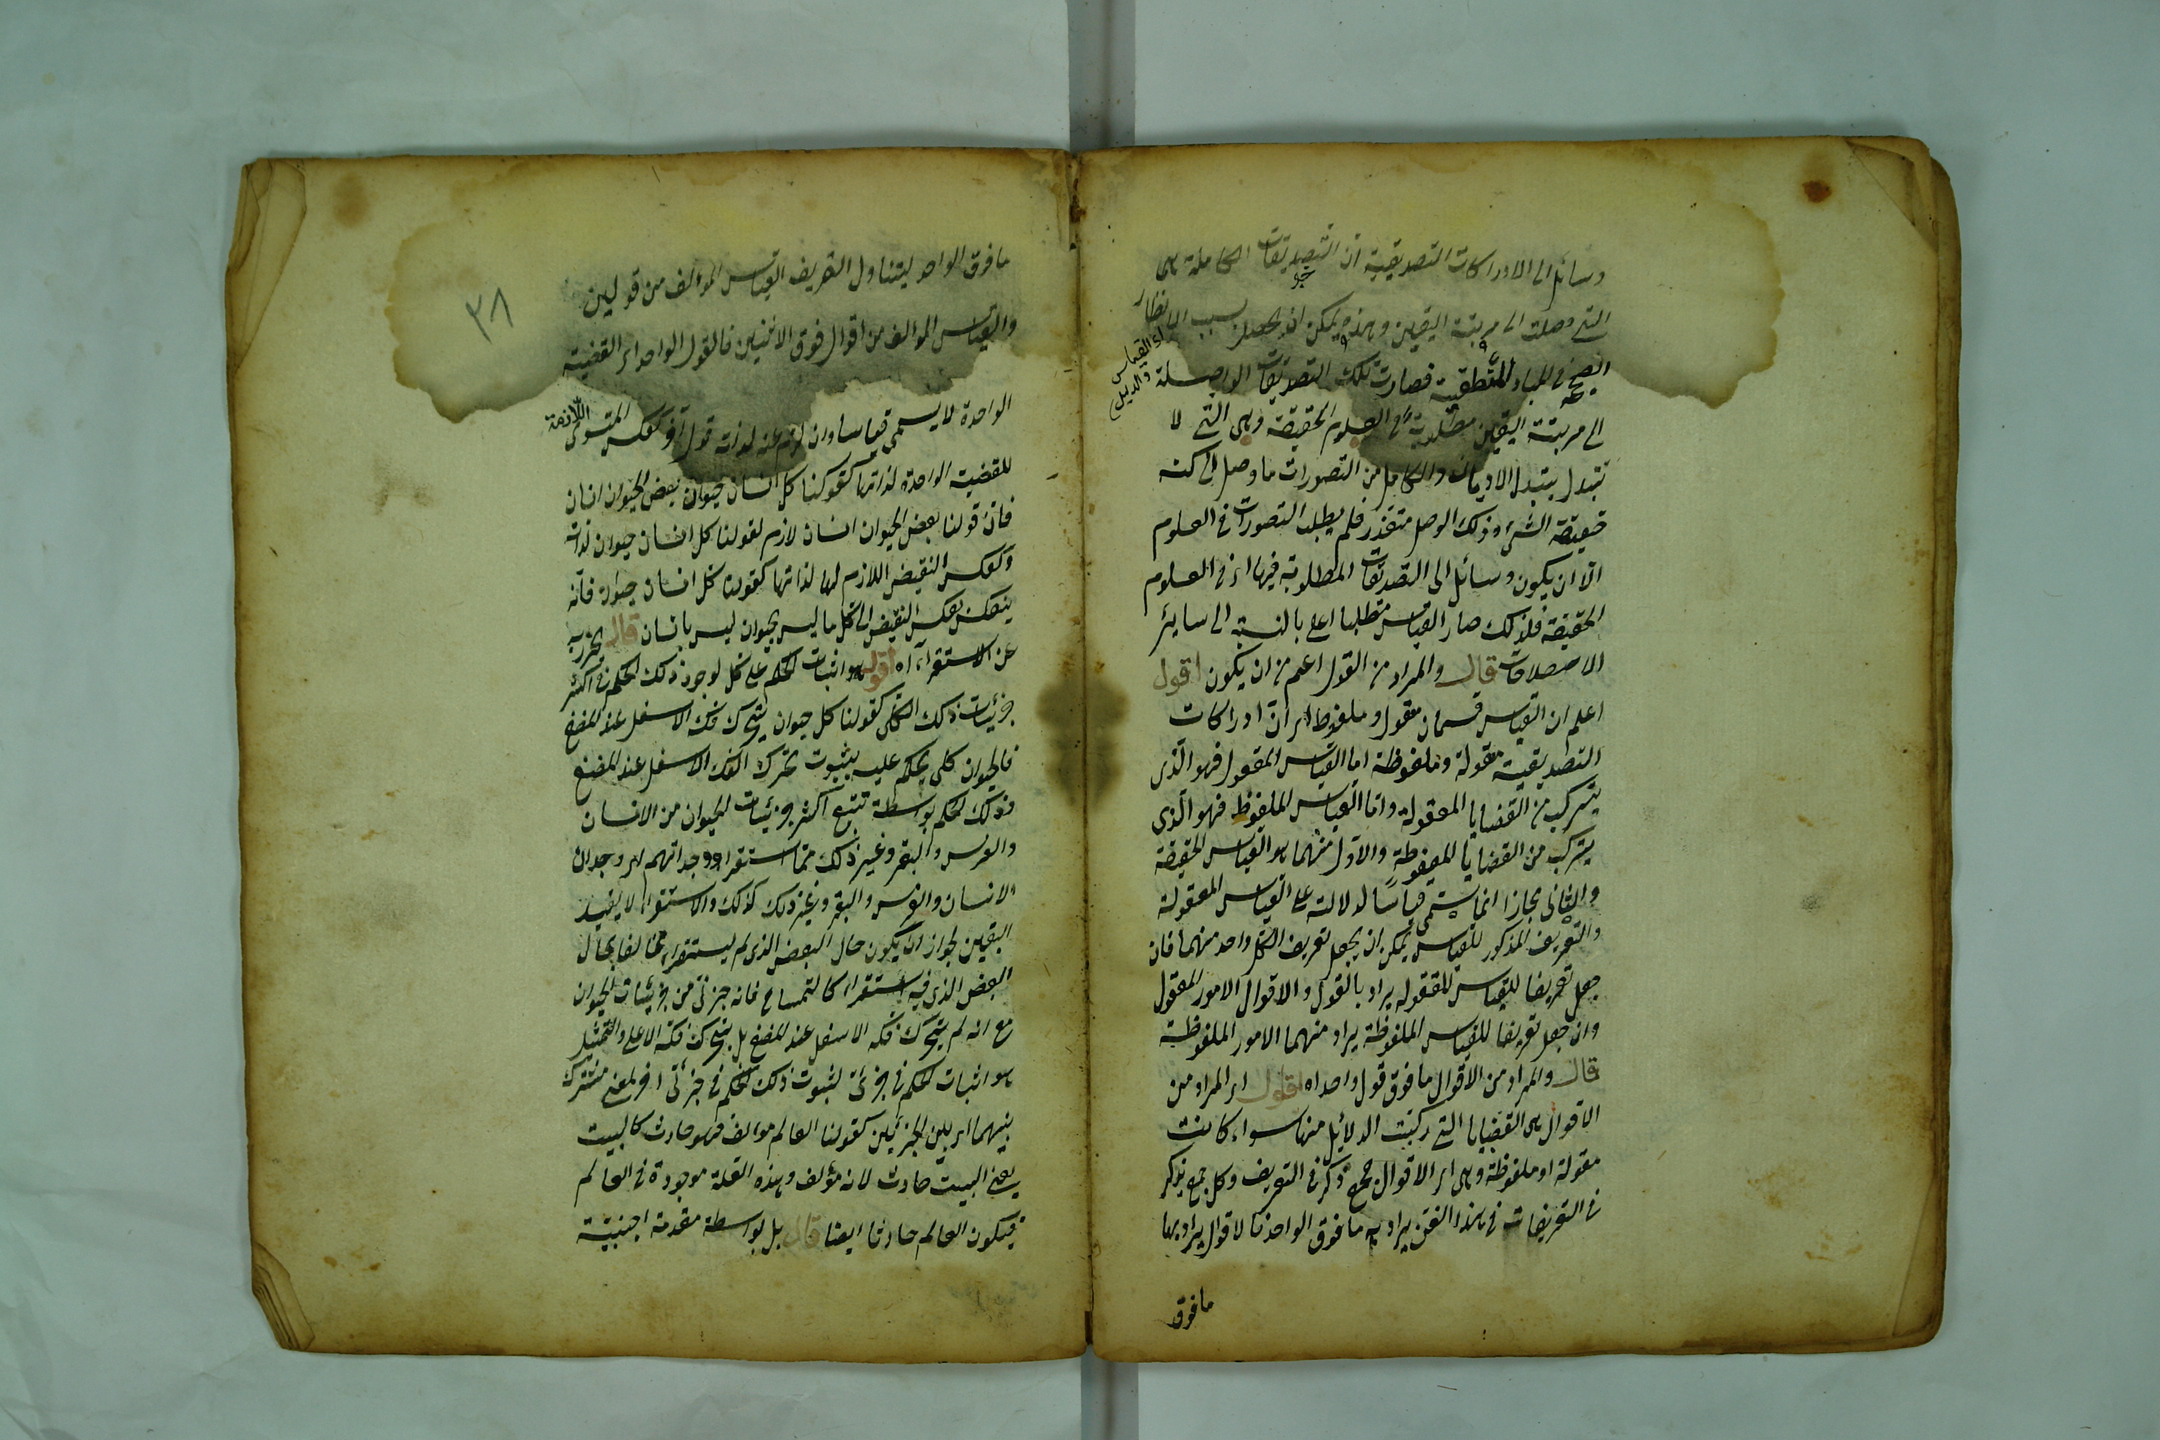 وسائل الى الادراكات التصديقية اذ التصديقات الكاملة هى
التى وصلت الى مرتبة اليقين وهذه يمكن ان يحصل بسبب الانظار
الصحيحة فى المبادى المنطقية فصارت تلك التصديقات الواصلة
اى القياس والدليل
الى مرتبة اليقين مطلوبة فى العلوم الحقيقة وهى التى لا
تتبدل بتبدل الاديان والكامل من التصورات ما وصل الى كنه
حقيقة الشئ وذلك الوصل متعذر فلم يطلب التصورات فى العلوم
الا ان يكون وسائل الى التصديقات المطلوبة فيها اى فى العلوم
الحقيقة فلذلك صار القياس مطلبا اعلى بالنسبة الى سائر
الاصطلاحات قال والمراد من القول اعم من ان يكون اقول
اعلم ان القياس قسمان معقول وملفوظ اى ان ادراكات
التصديقية معقولة وملفوظة اما القياس المعقول فهو الذى
يتركب من القضايا المعقولة واما القياس الملفوظ فهو الذى
يتركب من القضايا الملفوظة والاول منهما هو القياس الحقيقة
والثانى مجازا انما يسمى قياسا لدلالته على القياس المعقولة
والتعريف المذكور للقياس يمكن ان يجعل تعريف الكل واحد منهما فان
جعل تعريفا للقياس المعقولة يراد بالقول والاقوال الامور المعقول
وان جعل تعريفا للقياس الملفوظة يراد منهما الامور الملفوظة
قال والمراد من الاقوال ما فوق قول واحد اه اقول اى المراد من
الاقوال هى القضايا التى ركبت الدلائل منها سواء كانت
معقولة او ملفوظة وهى اى الاقوال جمع ذكر فى التعريف وكل جمع يذكر
فى التعريفات فى هذا الفن يراد به ما فوق الواحد فالاقوال يراد بها
ما فوق
٣٨
ما فوق الواحد ليتناول التعريف القياس المؤلف من قولين
والقياس المؤلف من اقوال فوق الاثنين فالقول الواحد اى القضية
الواحدة لا يسمى قياسا وان لزم عنه لذاته قول آخر كعكس المستوى اللازمة
للقضية الواحدة لذاتها كقولنا كل انسان حيوان بعض الحيوان انسان
فان قولنا بعض الحيوان انسان لازم لقولنا كل انسان حيوان لذاته
وكعكس النقيض اللازم لها لذاتها كقولنا كل انسان حيوان فانه
ينعكس بعكس النقيض الى كل ما ليس بحيوان ليس بانسان قال يحترز به
عن الاستقراء اه اقول هو اثبات الحكم على كل لوجود ذلك الحكم فى اكثر
جزئيات ذلك الكلى كقولنا كل حيوان يتحرك فكه الاسفل عند المضغ
فالحيوان كلى يحكم عليه بثبوت تحرك الفك الاسفل عند المضغ
وذلك الحكم بواسطة تتبع اكثر جزئيات الحيوان من الانسان
والفرس والبقر وغير ذلك مما استقراء ووجداتهم اى وجدان
الانسان والفرس والبقر وغير ذلك كذلك والاستقراء لا يفيد
اليقين لجواز ان يكون حال البعض الذى لم يستقراء مخالفا بحال
البعض الذى فيه استقراء كالتمساح فانه جزئى من جزئيات الحيوان
مع انه لم يتحرك فكه الاسفل عند المضغ بل يتحرك فكه الاعلى والتمثيل
هو اثبات الحكم فى جزئى لثبوت ذلك الحكم فى جزئى اخر لمعنى مشترك
بينهما اى بين الجزئيين كقولنا العالم مؤالف فهو حادث كالبيت
يعنى البيت حادث لانه مؤلف وهذه العلة موجودة فى العالم
فيكون العالم حادثا ايضا قال بل بواسطة مقدمة اجنبية